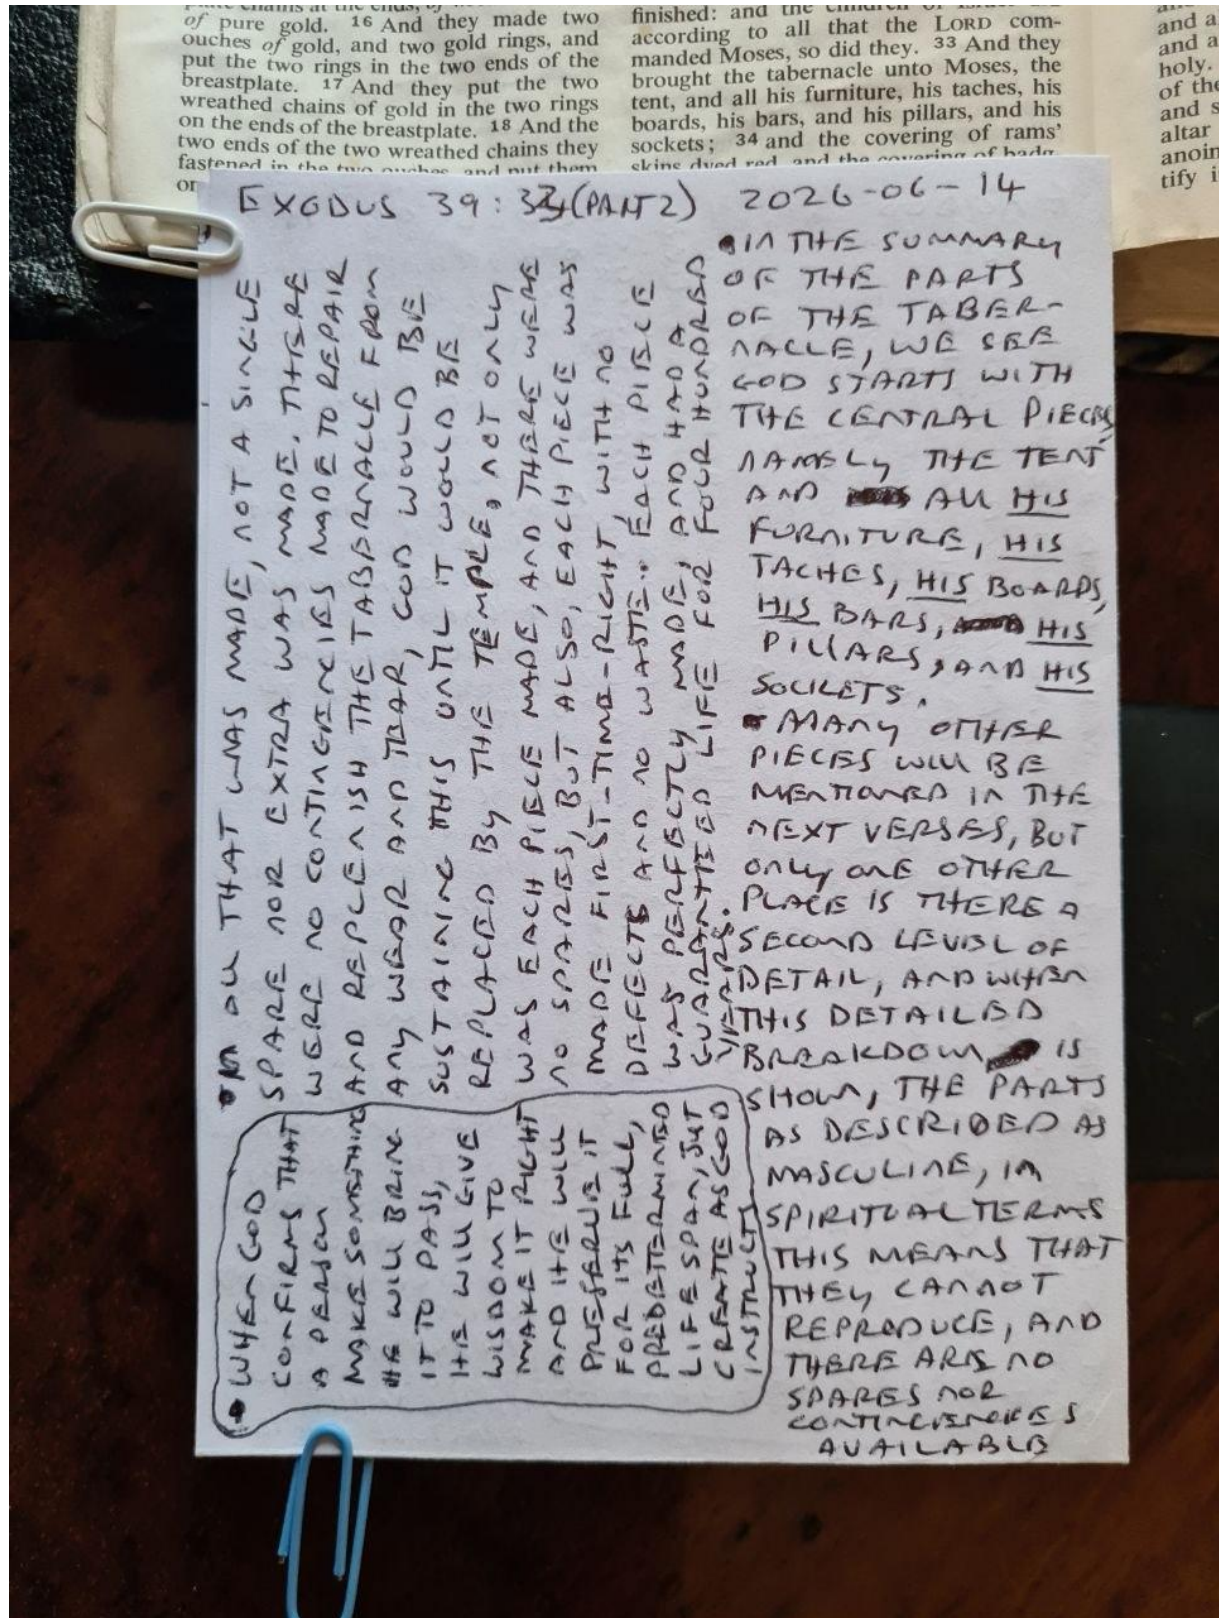 of pure gold. 16 And they made two
ouches of gold, and two gold rings, and
put the two rings in the two ends of the
breastplate. 17 And they put the two
wreathed chains of gold in the two rings
on the ends of the breastplate. 18 And the
two ends of the two wreathed chains they
fastened in the two ouches, and put them
or
finished: and the children of Israel
according to all that the LORD com-
manded Moses, so did they. 33 And they
brought the tabernacle unto Moses, the
tent, and all his furniture, his taches, his
boards, his bars, and his pillars, and his
sockets; 34 and the covering of rams'
skins dyed red, and the covering of badg-
and a
and a
holy.
of the
and s
altar
anoin
tify i
EXODUS 39:33 (PART 2) 2026-06-14
• IN THE SUMMARY
OF THE PARTS
OF THE TABER-
NACLE, WE SEE
GOD STARTS WITH
THE CENTRAL PIECES,
NAMELY THE TENT
AND ALL HIS
FURNITURE, HIS
TACHES, HIS BOARDS,
HIS BARS, HIS
PILLARS, AND HIS
SOCKETS.
• MANY OTHER
PIECES WILL BE
MENTIONED IN THE
NEXT VERSES, BUT
ONLY ONE OTHER
PLACE IS THERE A
SECOND LEVEL OF
DETAIL, AND WHEN
THIS DETAILED
BREAKDOWN IS
SHOWN, THE PARTS
AS DESCRIBED AS
MASCULINE, IN
SPIRITUAL TERMS
THIS MEANS THAT
THEY CANNOT
REPRODUCE, AND
THERE ARE NO
SPARES NOR
CONTINGENCIES
AVAILABLE
• IN ALL THAT WAS MADE, NOT A SINGLE
SPARE NOR EXTRA WAS MADE. THERE
WERE NO CONTINGENCIES MADE TO REPAIR
AND REPLENISH THE TABERNACLE FROM
ANY WEAR AND TEAR, GOD WOULD BE
SUSTAINING THIS UNTIL IT WOULD BE
REPLACED BY THE TEMPLE, NOT ONLY
WAS EACH PIECE MADE, AND THERE WERE
NO SPARES, BUT ALSO, EACH PIECE WAS
MADE FIRST-TIME-RIGHT, WITH NO
DEFECTS AND NO WASTE. EACH PIECE
WAS PERFECTLY MADE, AND HAD A
GUARANTEED LIFE FOR FOUR HUNDRED
YEARS.
• WHEN GOD
CONFIRMS THAT
A PERSON
MAKE SOMETHING
HE WILL BRING
IT TO PASS,
HE WILL GIVE
WISDOM TO
MAKE IT RIGHT
AND HE WILL
PRESERVE IT
FOR ITS FULL,
PREDETERMINED
LIFE SPAN, JUST
CREATE AS GOD
INSTRUCTS